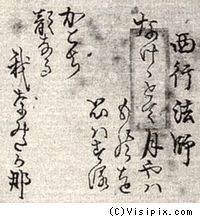 西行法師
なけゝとて月やハ
ものを
思ハする
かこち
顔なる
我なみたか那
(C)Visipix.com